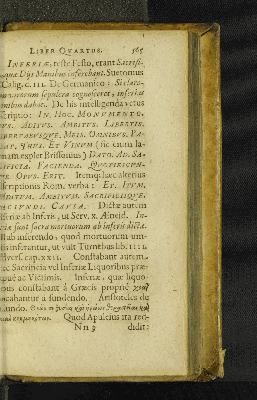 LIBER QUARTUS. 565
INFERIÆ, teste Festo, erant Sacrifi-
quæ Diis Manibus inferebant. Suetonius
Calig. c. III. De Germanico: Sicla-
virorum sepulcra cognosceret, inferias
anibus dabat. De his intelligenda vetus
scriptio: IN. HOC. MONUMENTO.
US. ADITUS. AMBITUS. LIBERTIS.
LIBERTABUSQUE. MEIS. OMNIBUS. PA-
ET VINUM (sic enim la-
nam explet Brissonius) DATO. AD. SA-
IFICIA. FACIENDA. QUOTIESCUN-
OPUS. ERIT. Itemque hæc alterius
scriptionis Rom. verba: ET. ITUM.
DITUM. AMBITUM. SACRIFICIIQUE.
ACIUNDI. CAUSA. Dictæ autem
feriæ ab Inferis, ut Serv. x. Æneid. In-
riæ sunt sacra mortuorum ab inferis dicta.
ab inferendo; quod mortuorum um-
is inferantur, ut vult Turnebus lib. III.
dvers. cap. XXII. Constabant autem
ec Sacrificia vel Inferiæ Liquoribus præ-
uè ac Victimis. Inferiæ, quæ liquo-
bus constabant à Græcis propriè
ocabantur à fundendo. Aristoteles de
undo.
Quod Apuleius ita red-
Nn 3 didit: